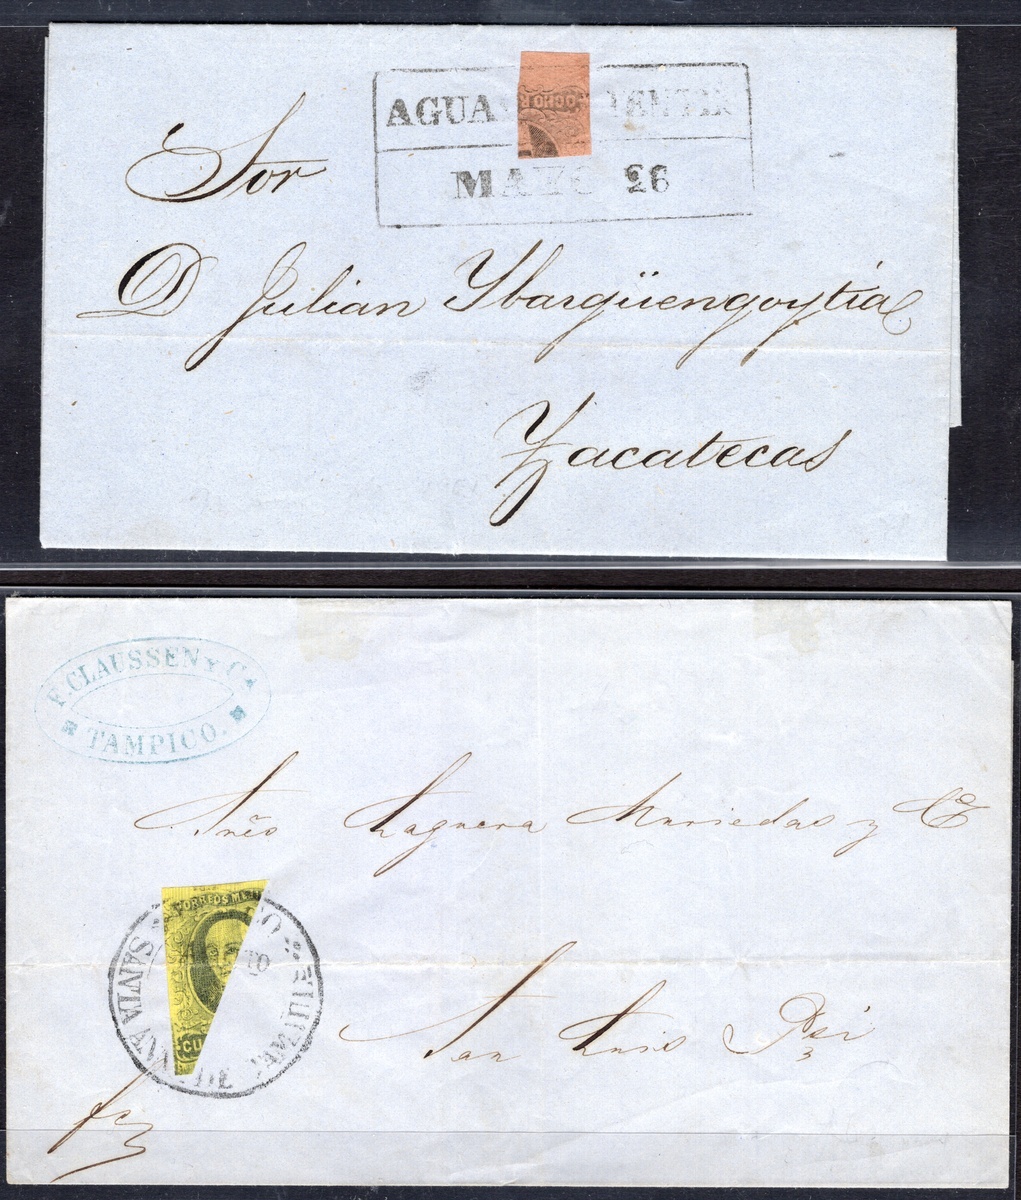 AGUAS ENTES
OCHO R
MAYO 26
Sor
D Julian Ybargüengoytia
Zacatecas
F. CLAUSSEN Y Ca
TAMPICO.
Laguera Muriedas y Ca
CORREOS MEJI
SANTA ANA DE TAMAULIP
CU
San Luis